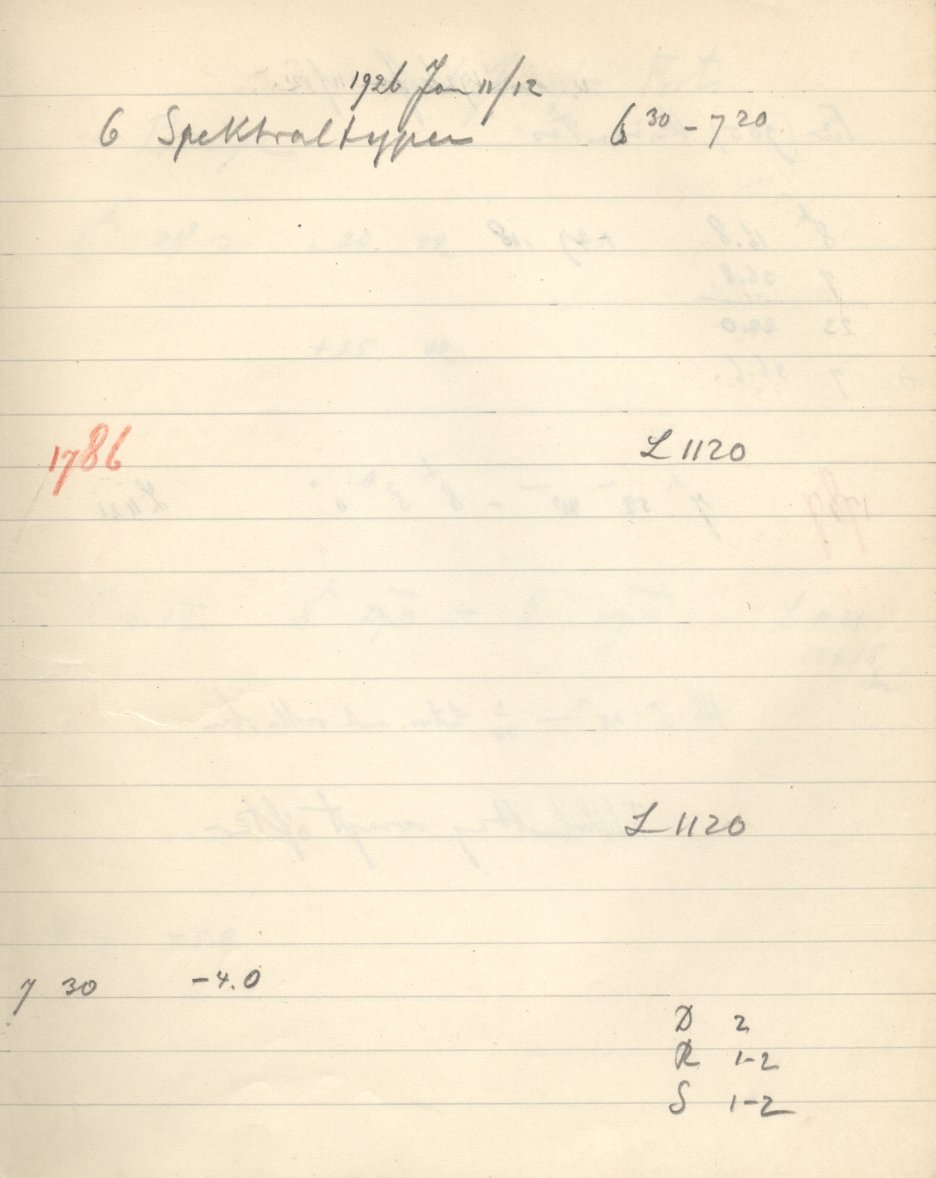 1926 Jan 11/12
6 Spektraltypen 6 30 - 7 20
1786 L 1120
L 1120
7 30 -4.0
D 2
R 1-2
S 1-2